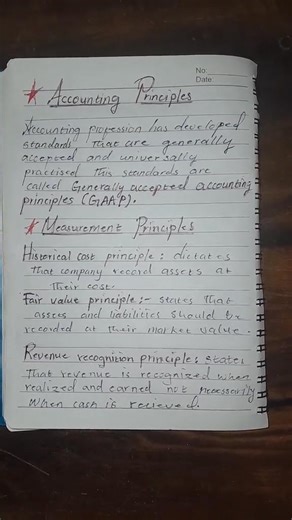 No:
Date:
Accounting Principles
Accounting profession has developed
standards that are generally
accepted and universally
practised This standards are
called Generally accepted accounting
principles (GAAP).
Measurement Principles
Historical cost principle: dictates
that company record assets at
their cost.
Fair value principle:- states that
assets and liabilities should be
recorded at their market value.
Revenue recognition principle: states
that revenue is recognized when
realized and earned not necessarily
when cash is recieved.